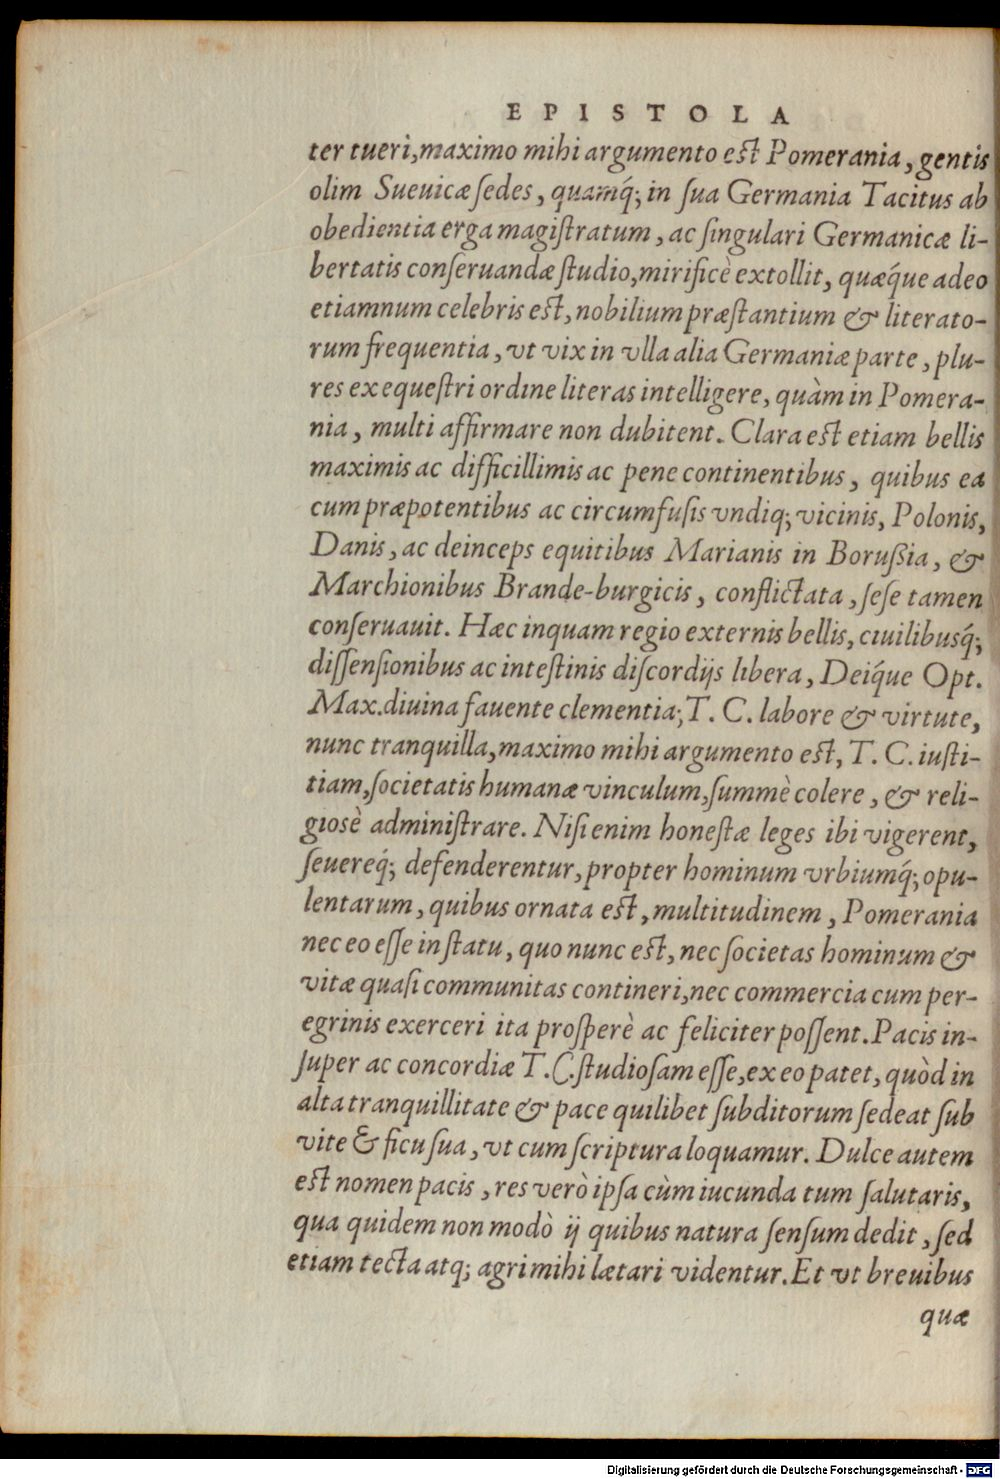 EPISTOLA
ter tueri, maximo mihi argumento est Pomerania, gentis
olim Sueuicæ ſedes, quamq́; in ſua Germania Tacitus ab
obedientia erga magiſtratum, ac ſingulari Germanicæ li-
bertatis conſeruandæ ſtudio, mirificè extollit, quæq́ue adeo
etiamnum celebris est, nobilium præſtantium & literato-
rum frequentia, vt vix in vlla alia Germaniæ parte, plu-
res ex equeſtri ordine literas intelligere, quàm in Pomera-
nia, multi affirmare non dubitent. Clara est etiam bellis
maximis ac difficillimis ac pene continentibus, quibus ea
cum præpotentibus ac circumfuſis vndiq; vicinis, Polonis,
Danis, ac deinceps equitibus Marianis in Borußia, &
Marchionibus Brande-burgicis, conflictata, ſeſe tamen
conſeruauit. Hæc inquam regio externis bellis, ciuilibusq́;
diſſenſionibus ac inteſtinis diſcordijs libera, Deiq́ue Opt.
Max. diuina fauente clementia; T. C. labore & virtute,
nunc tranquilla, maximo mihi argumento est, T. C. iuſti-
tiam, ſocietatis humanæ vinculum, ſummè colere, & reli-
gioſè adminiſtrare. Niſi enim honeſtæ leges ibi vigerent,
ſeuereq́; defenderentur, propter hominum vrbiumq́; opu-
lentarum, quibus ornata est, multitudinem, Pomerania
nec eo eſſe in ſtatu, quo nunc est, nec ſocietas hominum &
vitæ quaſi communitas contineri, nec commercia cum per-
egrinis exerceri ita proſperè ac feliciter poſſent. Pacis in-
ſuper ac concordiæ T. C. ſtudioſam eſſe, ex eo patet, quòd in
alta tranquillitate & pace quilibet ſubditorum ſedeat ſub
vite & ficu ſua, vt cum ſcriptura loquamur. Dulce autem
est nomen pacis, res verò ipſa cùm iucunda tum ſalutaris,
qua quidem non modò ij quibus natura ſenſum dedit, ſed
etiam tecta atq; agri mihi lætari videntur. Et vt breuibus
quæ
Digitalisierung gefördert durch die Deutsche Forschungsgemeinschaft - DFG